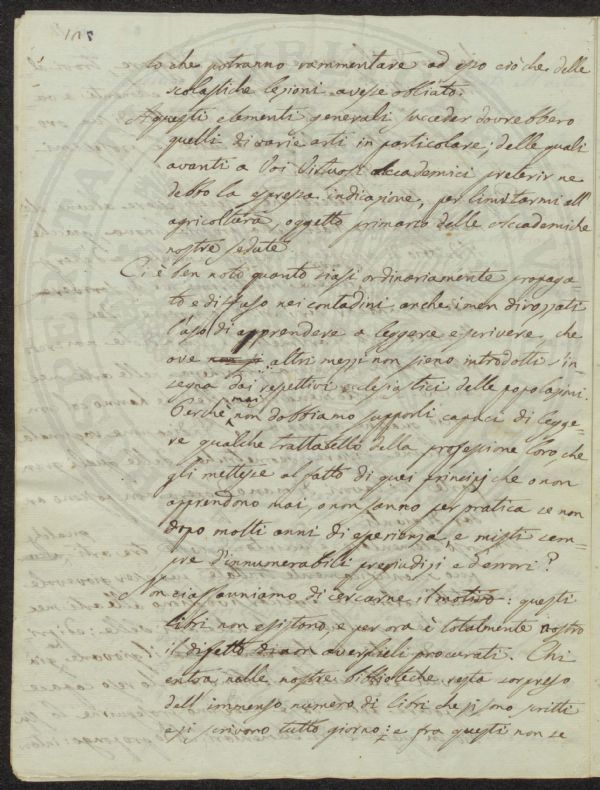 lo che potranno rammentare ad esso ciò che delle
scolastiche lezioni avesse obliato.
A questi elementi generali succeder dovrebbero
quelli di varie arti in particolare; delle quali
avanti a Voi Virtuosi Accademici preterir ne
debbo la espressa indicazione, per limitarmi all'
agricoltura, oggetto primario delle Accademiche
nostre sedute.
Ci è ben noto quanto siasi ordinariamente propaga
to e diffuso nei contadini anche i men dirozzati
l'uso di apprendere a leggere e scrivere, che
ove non si altri mezzi non sieno introdotti s'in-
segna dai respettivi ecclesiastici delle popolazioni.
Perchè mai non dobbiamo supporli capaci di legge
re qualche trattatello della professione loro, che
gli mettesse al fatto di quei principj che o non
apprendono mai, o non sanno per pratica se non
dopo molti anni di esperienza, e misti sem-
pre d'innumerabili pregiudizi e d'errori?
Non ci affanniamo di cercarne il motivo: questi
libri non esistono, e per ora è totalmente nostro
il difetto di non averglieli procurati. Chi
entra nelle nostre biblioteche resta sorpreso
dell'immenso numero di libri che si sono scritti
e si scrivono tutto giorno; e fra questi non se